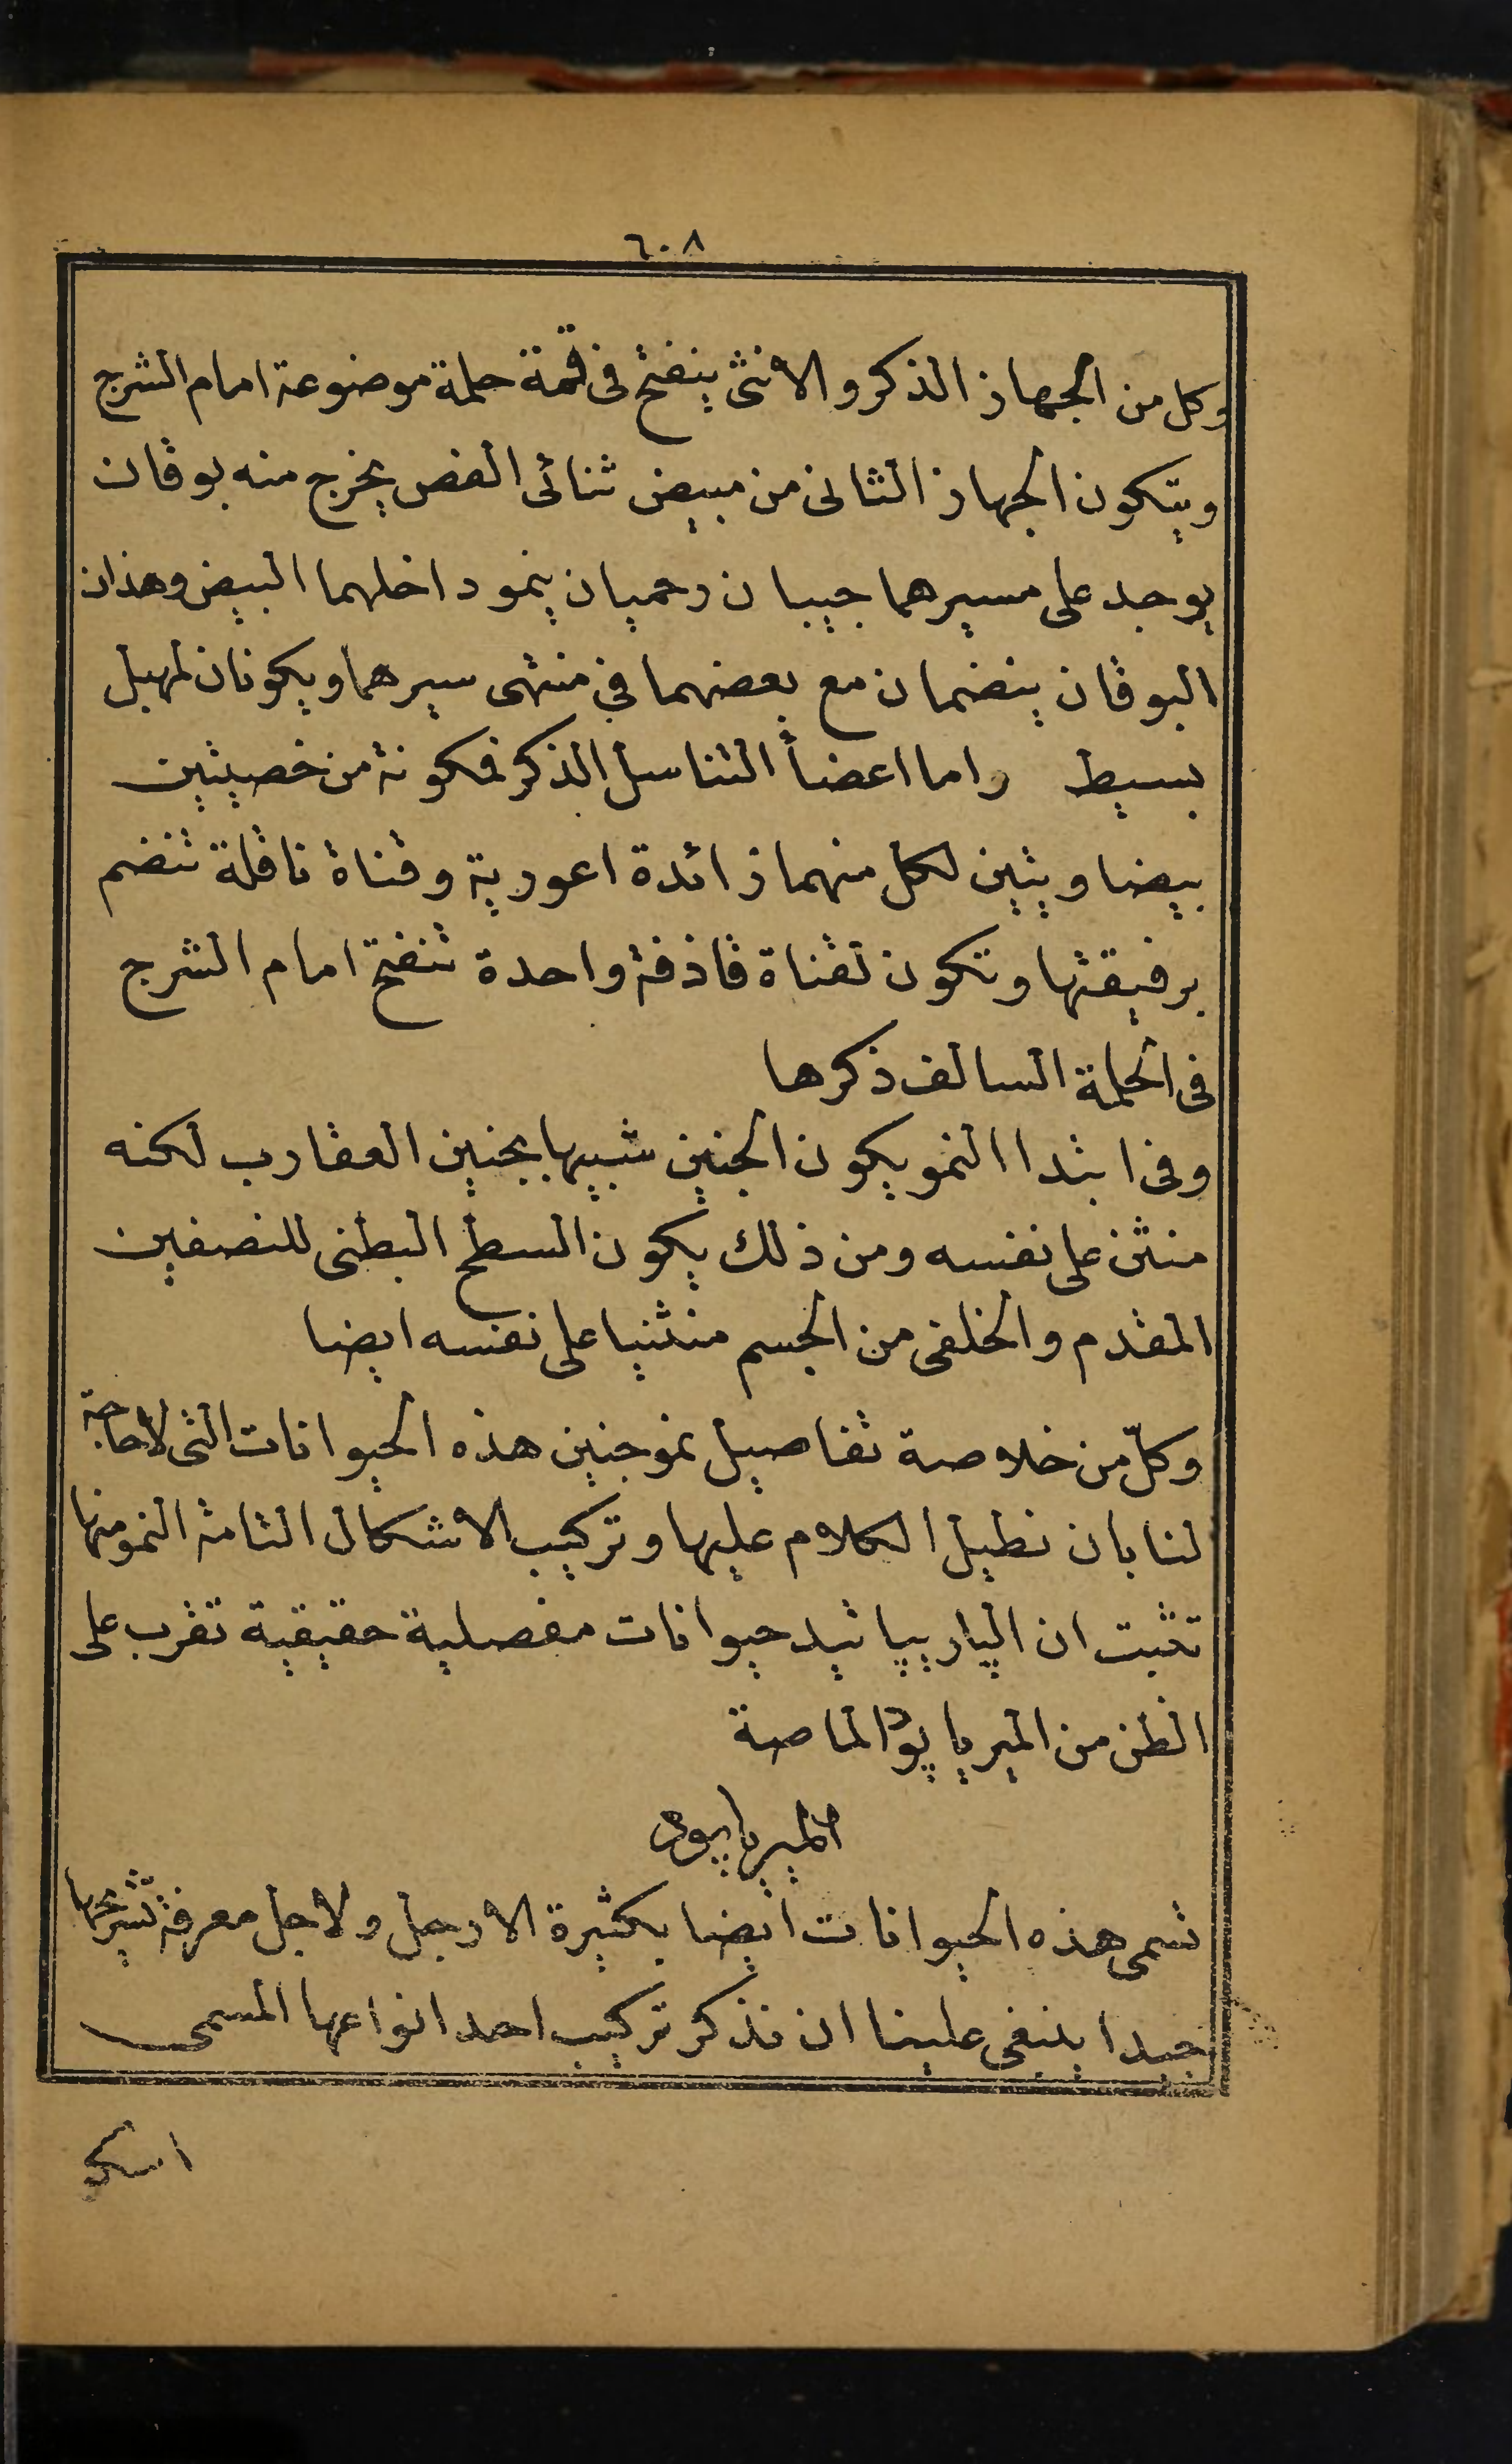 ٦٠٨
وكل من الجهاز الذكر والانثى ينفتح فى قمة حلمة موضوعة امام الشرج
ويتكون الجهاز الثانى من مبيض ثنائى الفص يخرج منه بوقان
يوجد على مسيرهما جيبان رحميان ينمو داخلهما البيض وهذان
البوقان ينضمان مع بعضهما في منتهى سيرهما ويكونان لمهبل
بسيط واما اعضأ التناسل الذكر فمكونة من خصيتين
بيضاويتين لكل منهما زائدة اعورية وقناة ناقلة تنضم
برفيقتها وتكون لقناة قاذفة واحدة تنفتح امام الشرج
فى الحلمة السالف ذكرها
وفى ابتدا النمو يكون الجنين شبيها بجنين العقارب لكنه
منثن على نفسه ومن ذلك يكون السطح البطنى للنصفين
المقدم والخلفى من الجسم منثنيا على نفسه ايضا
وكلّ من خلاصة تفاصيل نمو جنين هذه الحيوانات التى لاحاجة
لنا بان نطيل الكلام عليها وتركيب الاشكال التامة النمو منها
تثبت ان الپاريپاتيد حيوانات مفصلية حقيقية تقرب على
الظن من الميرياپود الماصة
الميرياپود
تسمى هذه الحيوانات ايضا بكثيرة الارجل ولاجل معرفة تشريحها
جيدا ينبغى علينا ان نذكر تركيب احد انواعها المسمى
اسكو